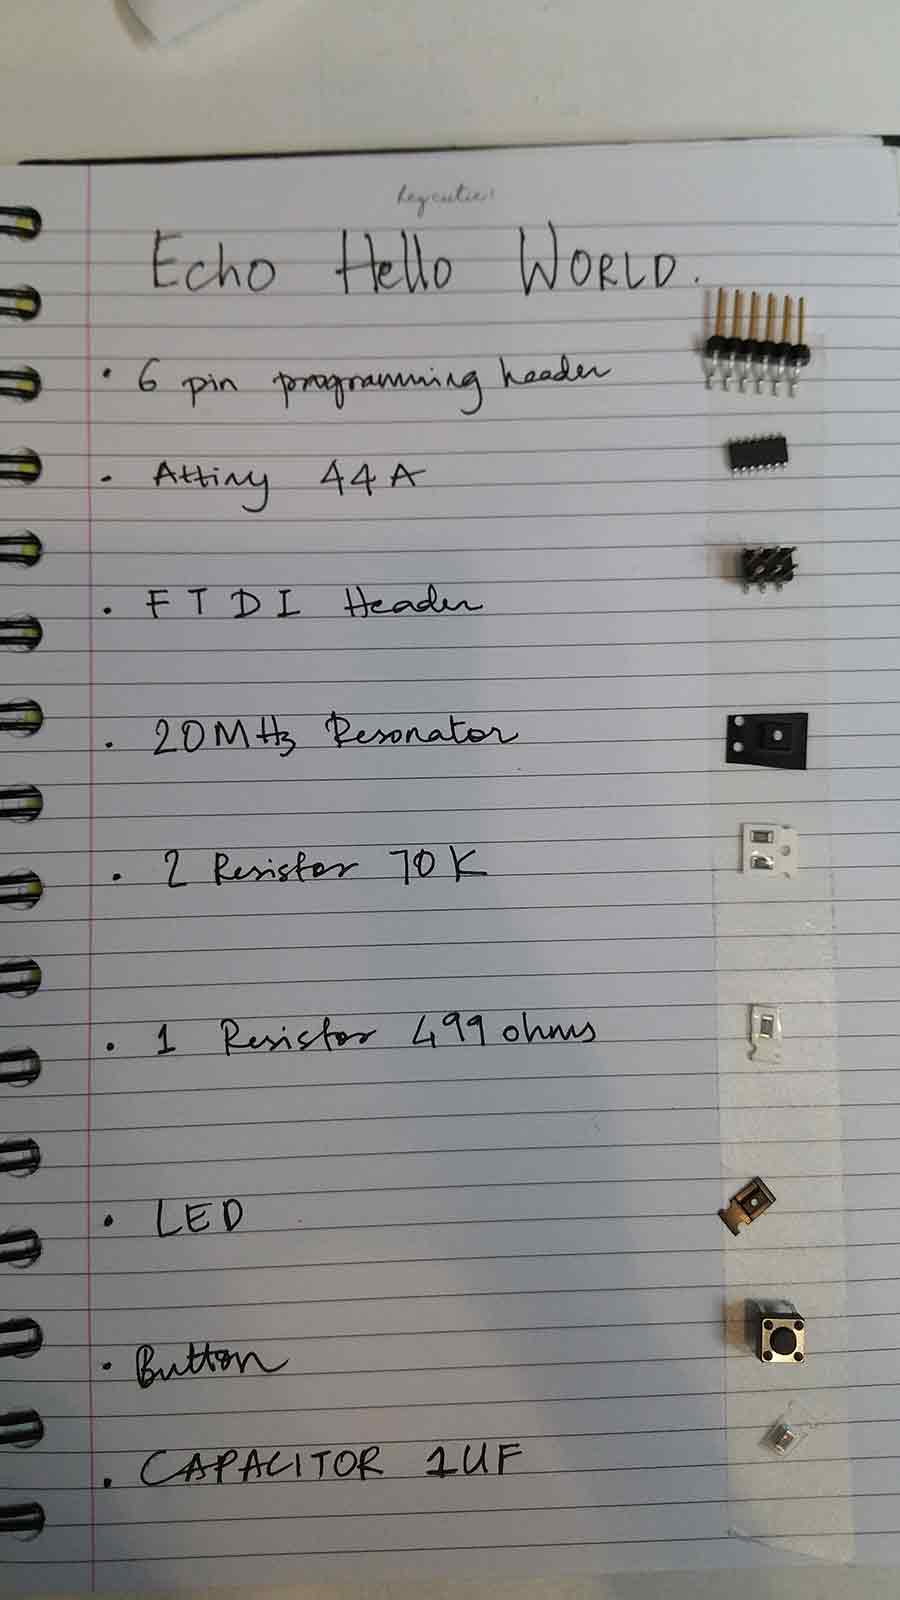 hey cutie!
Echo Hello WORLD.
• 6 pin programming header
• Attiny 44A
• FTDI Header
• 20MHz Resonator
• 2 Resistor 10K
• 1 Resistor 499 ohms
• LED
• Button
• CAPACITOR 1UF